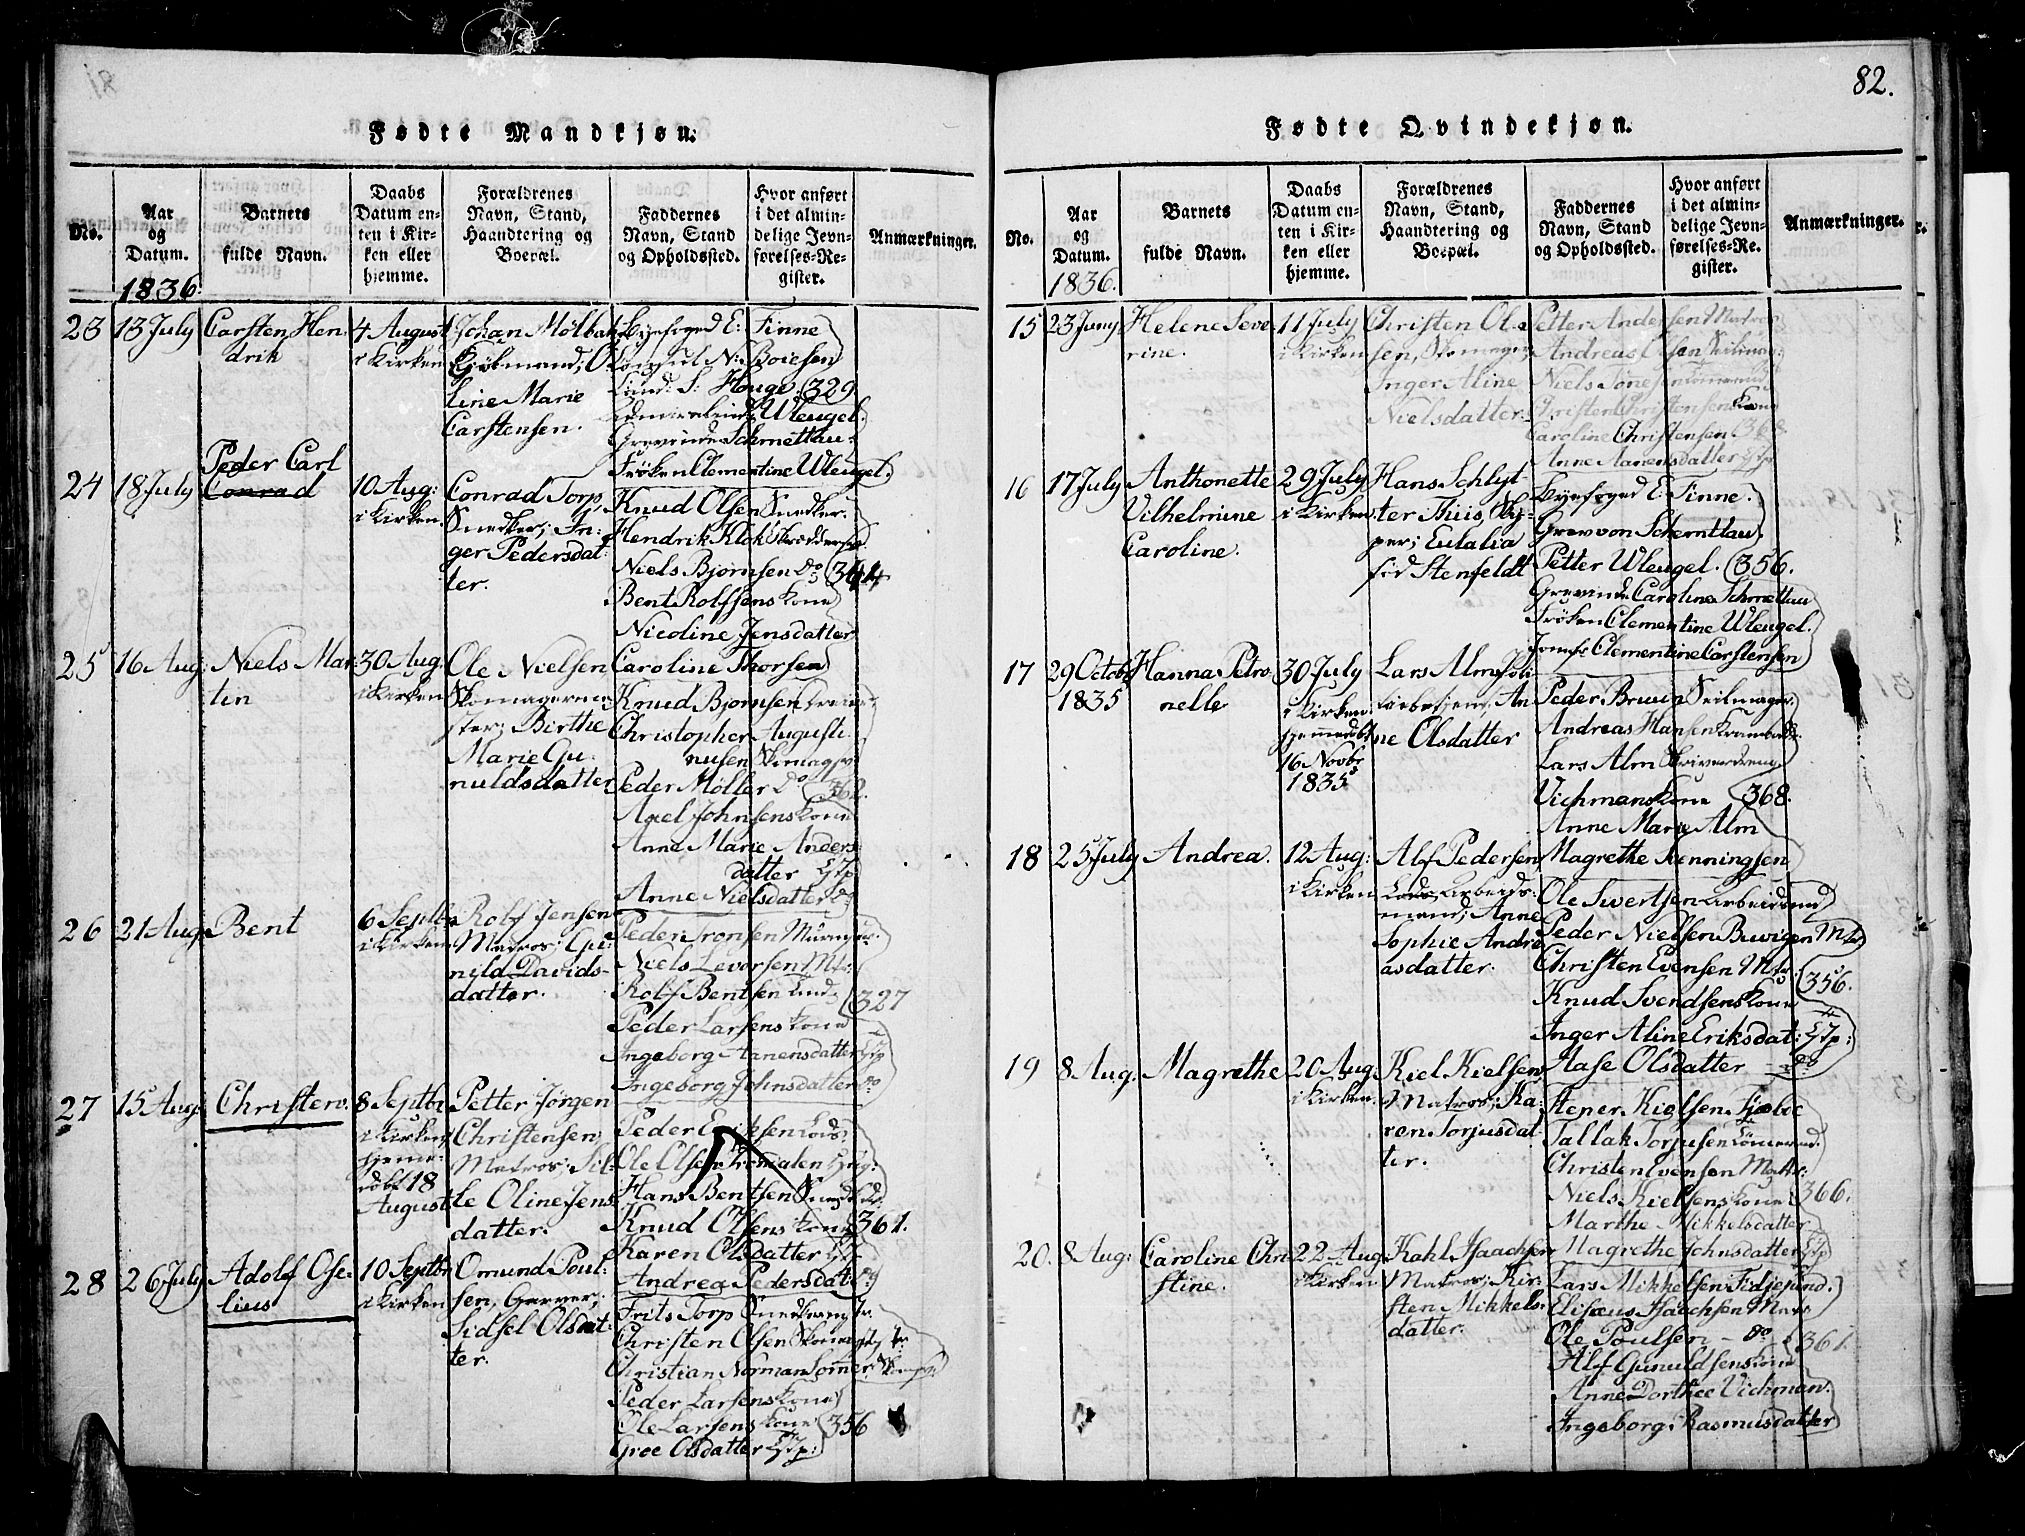 82.
Fødte Mandkjøn.
No.
Aar og Datum.
Barnets fulde Navn.
Daabs Datum enten i Kirken eller hjemme.
Forældrenes Navn, Stand, Haandtering og Boepæl.
Faddernes Navn, Stand og Opholdssted.
Hvor anført i det almindelige Jevnførelses-Register.
Anmærkninger.
1836.
23
13 July
Carsten Hen
drik
4 August
i Kirken
Johan Mølbak
Kjøbmand; O
line Marie
Carstensen.
Byefoged E: Finne
Consul N: Boiesen
329
Wleugel
Grevinde Schmettau
Frøken Clementine Wleugel.
24
18 July
Peder Carl
Conrad
10 Aug:
i Kirken.
Conrad Torp,
Snedker; In
ger Pedersdat
ter.
Knud Olsen Snedker.
Hendrik Klok
Niels Bjørnsen do
344
Bent Rolfsens Kone
Nicoline Jensdatter
Caroline Thorsen
25
16 Aug:
Niels Mar
tin
30 Aug:
i Kirken
Ole Nielsen
Skomagerme
ster; Birthe
Marie Gu
nuldsdatter
Knud Bjørnsen
Christopher Augusti
nusen
Peder Møller do
362.
Axel Johnsens Kone
Anne Marie Anders
datter
Anne Nielsdatter do
26
21 Aug.
Bent
6 Septbr
i Kirken
Rolf Jensen
Matros;
nild Davids-
datter.
Peder Tronsen
Niels Levorsen Mtr:
Rolf Bentsen
327
Peder Larsens Kone
Ingeborg Aanensdatter
Ingeborg Johnsdatter do
27
15 Aug:
Christen.
8 Septbr
i Kirken
hjeme-
døbt 18
August
Petter Jørgen
Christensen,
Matros; Sil-
le Oline Jens
datter.
Peder Eriksen Lods
Ole Olsen
Hans Bentsen
Knud Olsens Kone
361.
Karen Olsdatter
Andrea Pedersdat: do
28
26 July
Adolf Ose
lius
10 Septbr
i Kirken
Omund Poul-
sen, Garver;
Sidsel Olsdat
ter.
Frits Torp
Christen Olsen
Christian Norman
Peder Larsens Kone
Ole Larsens Kone
356
Groe Olsdatter
Fødte Qvindekjøn.
No.
Aar og Datum.
Barnets fulde Navn.
Daabs Datum enten i Kirken eller hjemme.
Forældrenes Navn, Stand, Haandtering og Boepæl.
Faddernes Navn, Stand og Opholdssted.
Hvor anført i det almindelige Jevnførelses-Register.
Anmærkninger.
1836.
15
23 Juny
Helene Seve
rine.
11 July
i Kirken
Christen Ol
sen, Skomager;
Inger Aline
Nielsdatter.
Petter Andersen Matros
Andreas Olsen Seilmag:
Niels
Christen Christensens Kone
Caroline Christensen
Anne Aanensdatter
16
17 July
Anthonette
Vilhelmine
Caroline.
29 July
i Kirken
Hans Schlyt
ter Thiis, Skip-
per; Eulalia
fød Stenfeldt
Byefoged E: Finne.
Grev von Schmettau,
Petter Wleugel.
356.
Grevinde Caroline Schmettau
Frøken Clementine Wleugel.
Jomfr Clementine Carstensen
17
29 Octobr
1835
Hanna Petro
nelle
30 July
i Kirken
hjemmedøbt
16 Novbr
1835
Lars Alm
An
ne Olsdatter
Peder Bruun Seilmager.
Andreas Hansen
Lars Alm Skriverdreng
Vichmans Kone
368.
Anne Marie Alm
Magrethe Henningsen
18
25 July
Andrea.
12 Aug:
i Kirken
Alf Pedersen,
Arbeids-
mand; Anne
Sophie Andre
asdatter.
Ole Swertsen Arbeidsmd
Peder Nielsen Buvigen Mtr
Christen Evensen Mtr:
356.
Knud Svendsens Kone
Inger Aline Eriksdat:
Aase Olsdatter do
19
8 Aug.
Magrethe
20 Aug
i Kirken
Kiel Kielsen,
Matros; Ka-
ren Torjusdat
ter.
Stener Kielsen
Tallak Torjusen
Christen Evensen Matr:
Niels Kielsens Kone
366.
Marthe Mikkelsdatter
Magrethe Johnsdatter
20.
8 Aug:
Caroline Chri
stine.
22 Aug
i Kirken
Kahl Isaachsen
Matros; Kir-
sten Mikkels-
datter.
Lars Mikkelsen
Elisæus Isaachsen Matr
Ole Poulsen - do
361.
Alf Gunuldsens Kone
Anne Dorthee Vichman.
Ingeborg Rasmusdatter